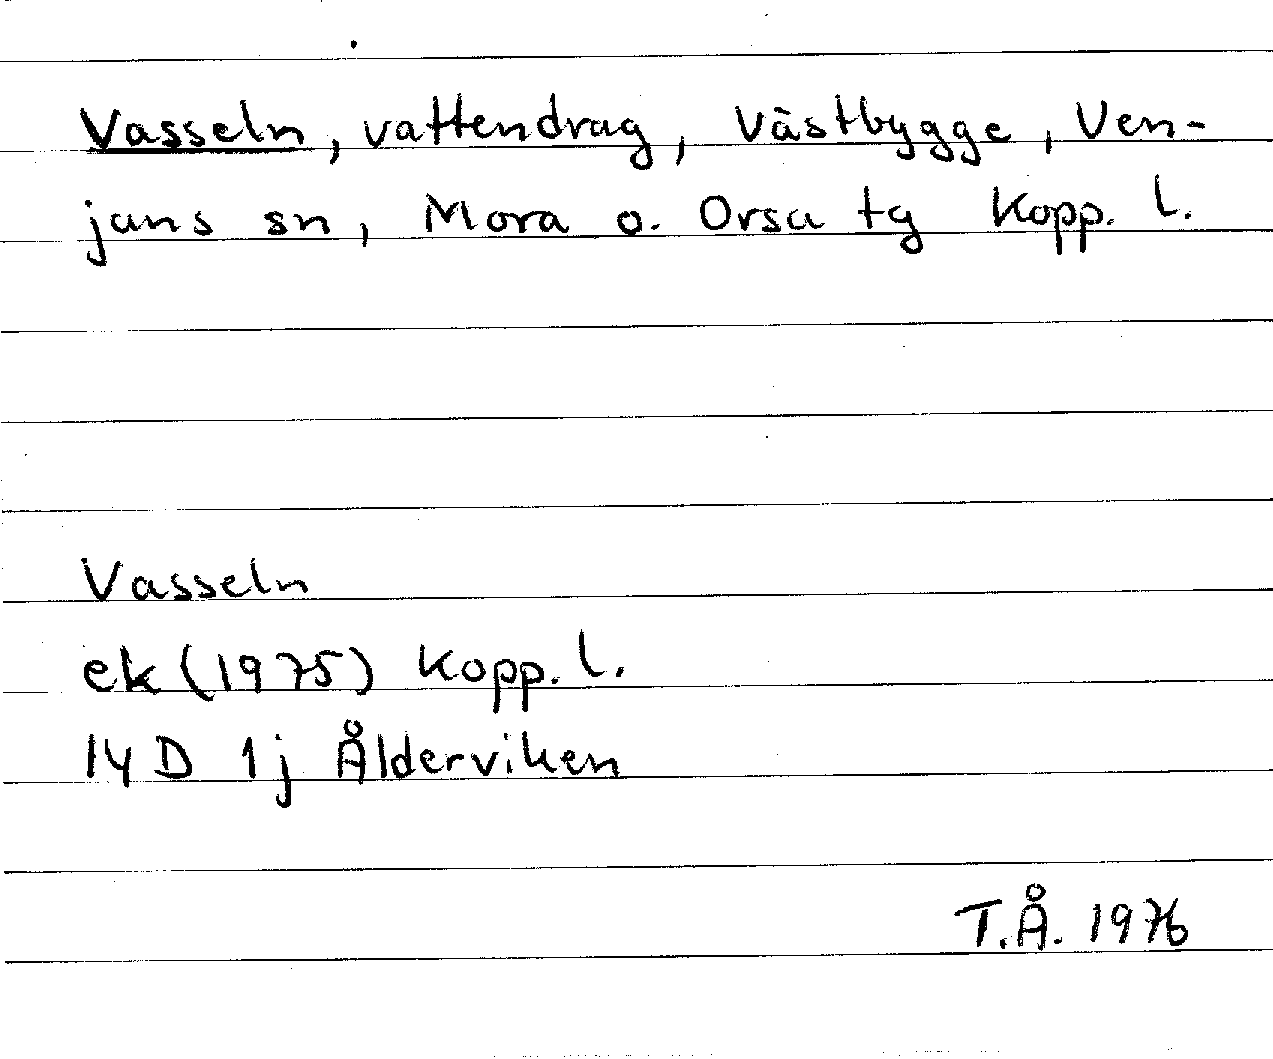 Vasseln, vattendrag, Västbygge, Ven-
jans sn, Mora o. Orsa tg Kopp. l.
Vasseln
ek (1975) Kopp. l.
14 D 1j Ålderviken
T.Å. 1976